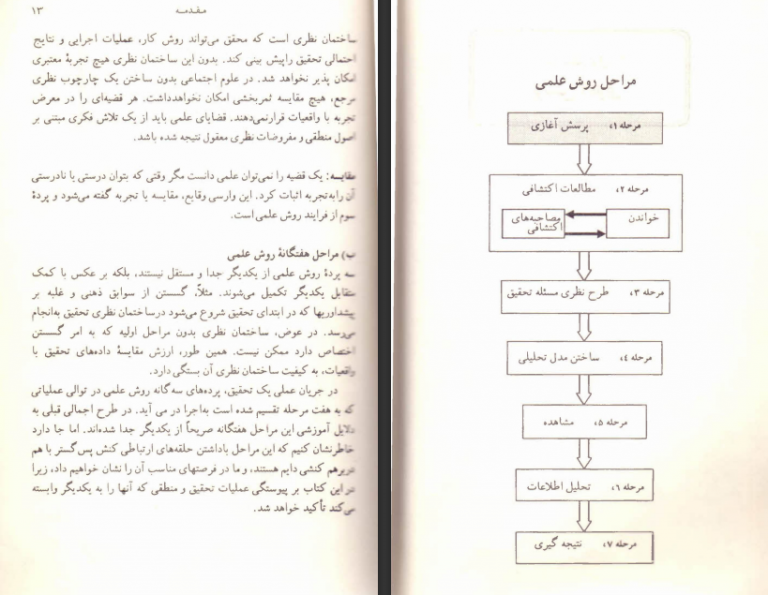 مقدمه ۱۳
ساختمان نظری است که محقق می‌تواند روش کار، عملیات اجرایی و نتایج
احتمالی تحقیق راپیش بینی کند. بدون این ساختمان نظری هیچ تجربهٔ معتبری
امکان پذیر نخواهد شد. در علوم اجتماعی بدون ساختن یک چارچوب نظری
مرجع، هیچ مقایسه ثمربخشی امکان نخواهدداشت. هر قضیه‌ای را در معرض
تجربه با واقعیات قرارنمی‌دهند. قضایای علمی باید از یک تلاش فکری مبتنی بر
اصول منطقی و مفروضات نظری معقول نتیجه شده باشد.
مقایسه: یک قضیه را نمی‌توان علمی دانست مگر وقتی که بتوان درستی یا نادرستی
آن رابه‌تجربه اثبات کرد. این وارسی وقایع، مقایسه یا تجربه گفته می‌شود و پردهٔ
سوم از فرایند روش علمی است.
ب) مراحل هفتگانهٔ روش علمی
سه پردهٔ روش علمی از یکدیگر جدا و مستقل نیستند، بلکه بر عکس با کمک
متقابل یکدیگر تکمیل می‌شوند. مثلاً، گسستن از سوابق ذهنی و غلبه بر
پیشداوریها که در ابتدای تحقیق شروع می‌شود درساختمان نظری تحقیق به‌انجام
می‌رسد. در عوض، ساختمان نظری بدون مراحل اولیه که به امر گسستن
اختصاص دارد ممکن نیست. همین طور، ارزش مقایسهٔ داده‌های تحقیق با
واقعیات، به کیفیت ساختمان نظری آن بستگی دارد.
در جریان عملی یک تحقیق، پرده‌های سه گانه روش علمی در توالی عملیاتی
که به هفت مرحله تقسیم شده است به‌اجرا در می آید. در طرح اجمالی قبلی به
دلایل آموزشی این مراحل هفتگانه صریحاً از یکدیگر جدا شده‌اند. اما جا دارد
خاطرنشان کنیم که این مراحل باداشتن حلقه‌های ارتباطی کنش پس گستر با هم
دربرهم کنشی دایم هستند، و ما در فرصتهای مناسب آن را نشان خواهیم داد، زیرا
در این کتاب بر پیوستگی عملیات تحقیق و منطقی که آنها را به یکدیگر وابسته
می‌کند تأکید خواهد شد.
مراحل روش علمی
مرحله ۱، پرسش آغازی
مرحله ۲، مطالعات اکتشافی
خواندن
مصاحبه‌های
اکتشافی
مرحله ۳، طرح نظری مسئله تحقیق
مرحله ۴، ساختن مدل تحلیلی
مرحله ۵، مشاهده
مرحله ۶، تحلیل اطلاعات
مرحله ۷، نتیجه گیری